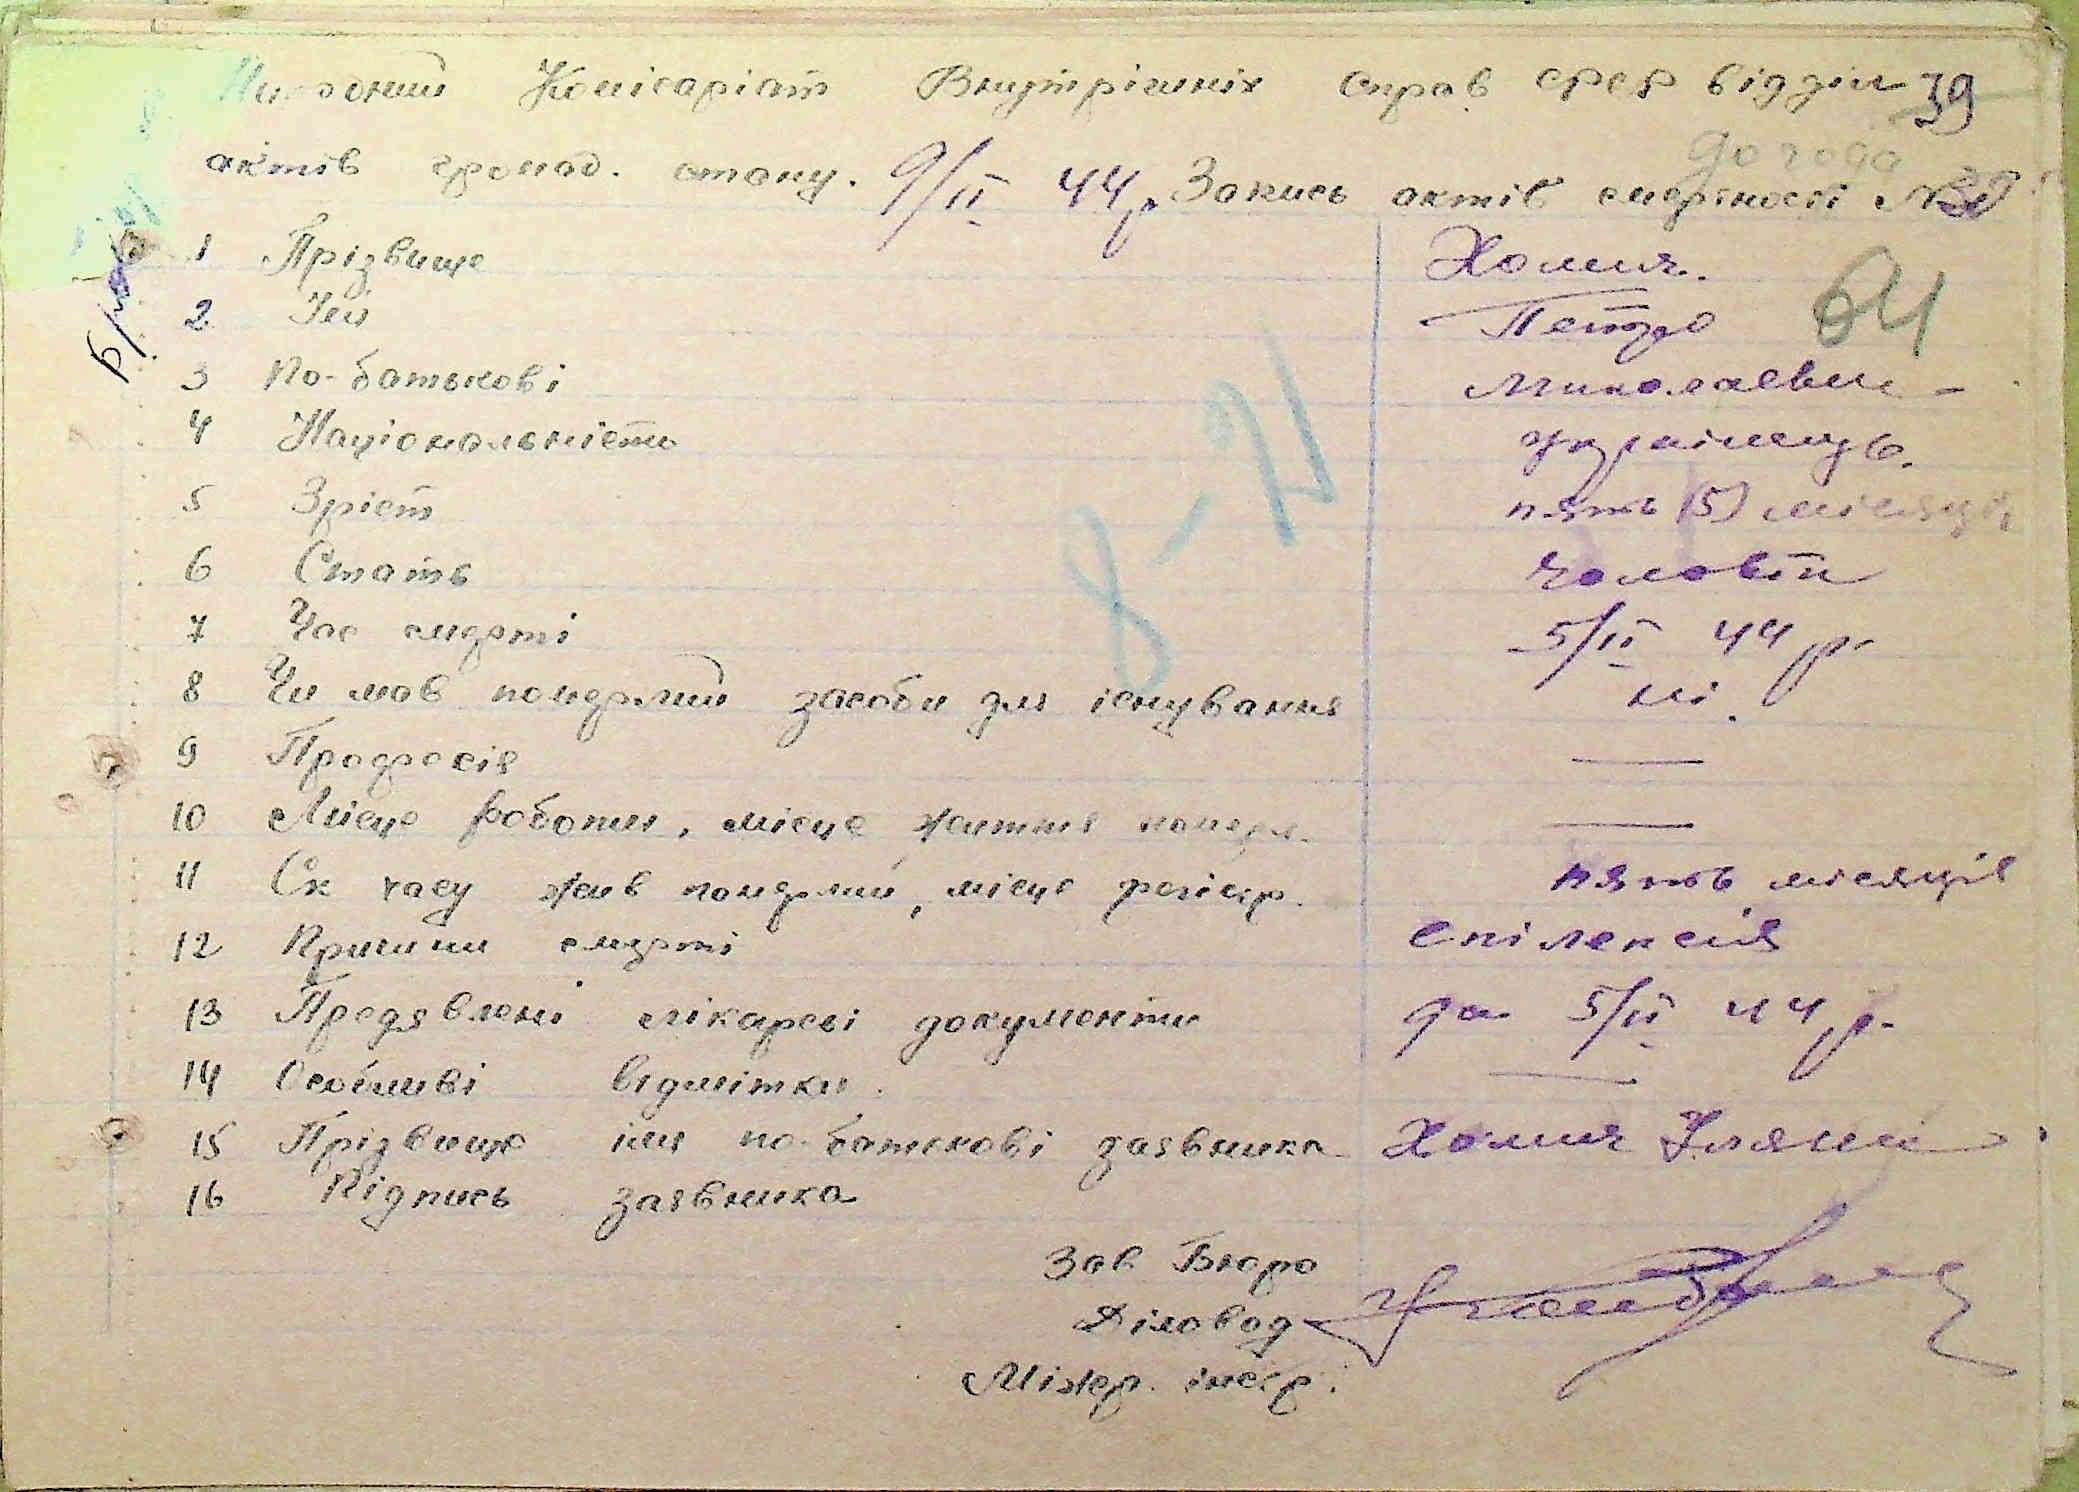 Комісаріат Внутрішніх справ СРСР відділ 39
актів громад. стану. 9/II 44 р. Запись актів смертності №
до года
1 Прізвище Хомич.
2 Імя Петро
64
3 По-батькові Миколаевич
4 Національність українець.
5 Зріст пять (5) місяців
6 Стать Чоловік
7 Час смерті 5/II 44 р.
8 Чи мав померлий засоби для існування ні.
9 Професія —
10 Місце роботи, місце життя помер. —
11 Ск часу жив померлий, місце реєістр. пять місяців
12 Причини смерті Епілепсия
13 Предявлені лікарсві документи да 5/II 44 р.
14 Особливі відмітки. —
15 Прізвище імя по-батькові заявника Хомич Уляни
16 Підпись заявника
Зав Бюро
Діловод